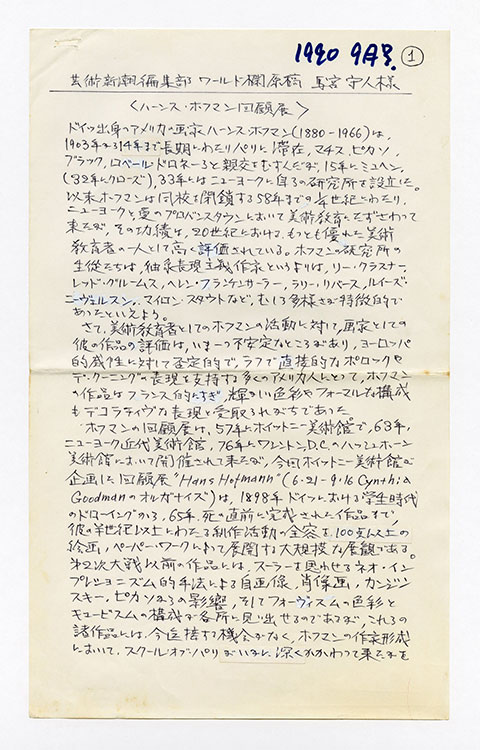 1990 9月号. ①
芸術新潮編集部 ワールド欄原稿 馬宮守人様
〈ハーンス・ホフマン回顧展〉
ドイツ出身のアメリカの画家ハーンス・ホフマン(1880-1966)は,
1903年から14年まで長期にわたりパリに滞在, マチス, ピカソ,
ブラック, ロベール・ドロネーらと親交をむすんだが, 15年にミュヘン,
('32年にクローズ), 33年にはニューヨークに自らの研究所を設立した。
以来ホフマンは同校を閉鎖する58年まで半世紀にわたり,
ニューヨークと夏のプロビンスタウンにおいて美術教育にたずさわって
来たが, その功績は, 20世紀における, もっとも優れた美術
教育者の一人として高く評価されている。ホフマンの研究所の
生徒たちは, 抽象表現主義作家というよりは, リー・クラスナー,
レッド・グルームス, ヘレン・フランケンサーラー, ラリー・リバース, ルイーズ・
ニーヴェルスン, マイロン・スタウトなど, むしろ多様さが特徴的で
あったといえよう。
さて, 美術教育者としてのホフマンの活動に対して, 画家としての
彼の作品の評価は, いま一つ不安定なところがあり, ヨーロッパ
的感性に対して否定的で, ラフで直接的なポロックや
デ・クーニングの表現を支持する多くのアメリカ人にとって, ホフマン
の作品はフランス的にすぎ, 輝しい色彩やフォーマルな構成
もデコラティヴな表現と受取れがちであった
ホフマンの回顧展は, 57年にホイットニー美術館で, 63年,
ニューヨーク近代美術館, 76年にワシントン, D.C.のハッシュホーン
美術館において開催されて来たが, 今回ホイットニー美術館が
企画した回顧展 "Hans Hofmann" (6・21-9・16 Cynthia
Goodmanのオルガナイズ)は, 1898年ドイツにおける学生時代
のドローイングから, 65年, 死の直前に完成された作品まで,
彼の半世紀以上にわたる制作活動の全容を100点以上の
絵画, ペーパー・ワークによって展開する大規模な展観である。
第2次大戦以前の作品には, スーラーを思わせるネオ・イン
プレショニズム的手法による自画像, 肖像画, カンジン
スキー, ピカソからの影響, そしてフォーヴィスムの色彩と
キュービスムの構成が各所に見い出せるのであるが, これらの
諸作品には, 今迄接する機会がなく, ホフマンの作家形成
において, スクール・オブ・パリがいかに深くかかわって来たかを